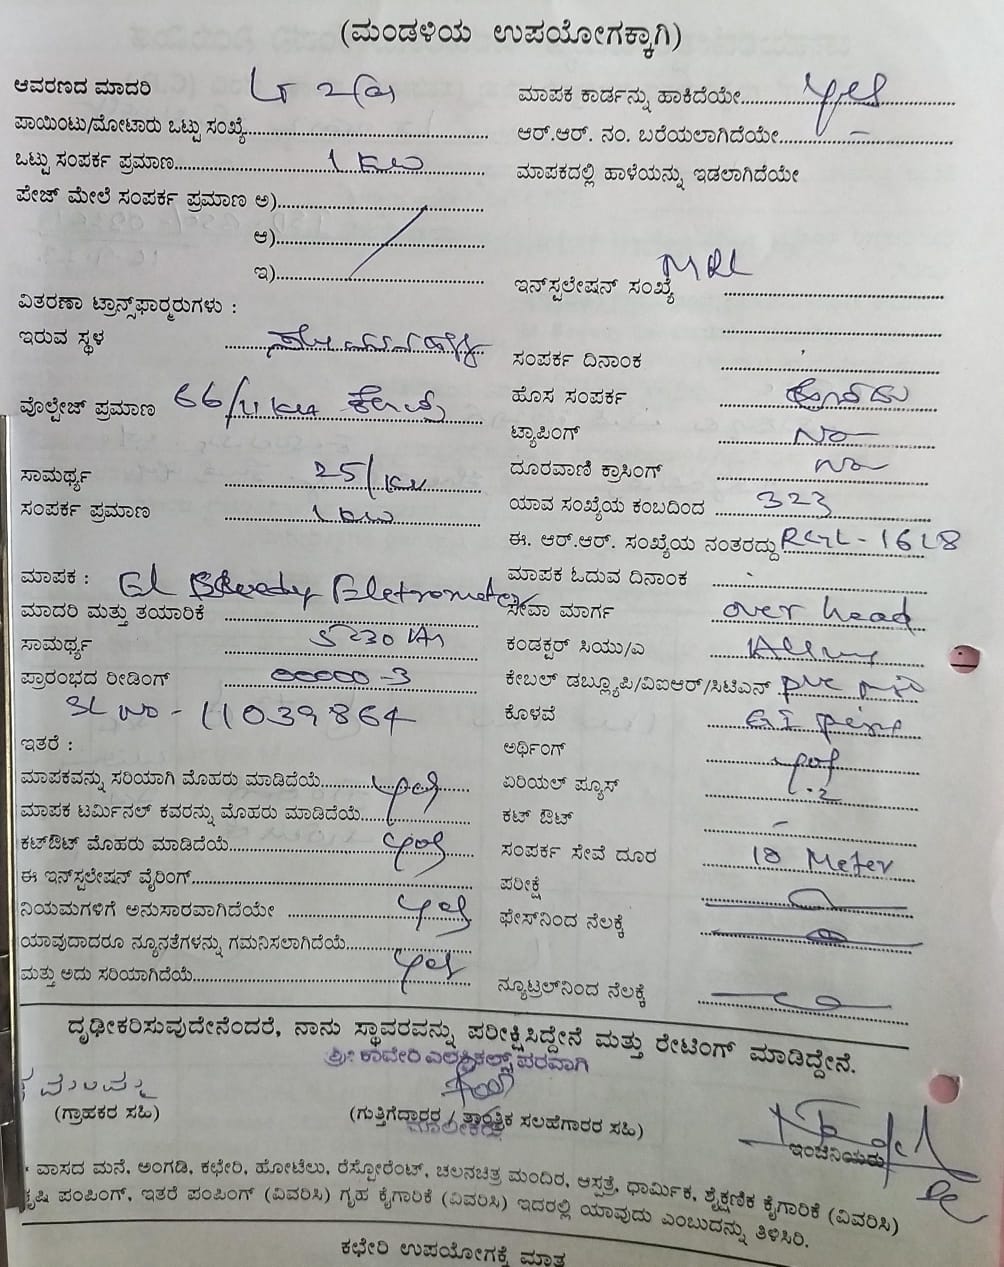 (ಮಂಡಳಿಯ ಉಪಯೋಗಕ್ಕಾಗಿ)
ಆವರಣದ ಮಾದರಿ
ಪಾಯಿಂಟು/ಮೋಟಾರು ಒಟ್ಟು ಸಂಖ್ಯೆ
ಒಟ್ಟು ಸಂಪರ್ಕ ಪ್ರಮಾಣ 1 KW
ಪೇಜ್ ಮೇಲೆ ಸಂಪರ್ಕ ಪ್ರಮಾಣ ಅ)
ಆ)
ಇ)
ವಿತರಣಾ ಟ್ರಾನ್ಸ್‌ಫಾರ್‍ಮರುಗಳು :
ಇರುವ ಸ್ಥಳ
ವೊಲ್ಟೇಜ್ ಪ್ರಮಾಣ 66/11
ಸಾಮರ್ಥ್ಯ 25/
ಸಂಪರ್ಕ ಪ್ರಮಾಣ 1 KW
ಮಾಪಕ :
ಮಾದರಿ ಮತ್ತು ತಯಾರಿಕೆ
ಸಾಮರ್ಥ್ಯ
ಪ್ರಾರಂಭದ ರೀಡಿಂಗ್ 00000-3
SL NO - 11039864
ಇತರೆ :
ಮಾಪಕವನ್ನು ಸರಿಯಾಗಿ ಮೊಹರು ಮಾಡಿದೆಯೆ yes
ಮಾಪಕ ಟರ್ಮಿನಲ್ ಕವರನ್ನು ಮೊಹರು ಮಾಡಿದೆಯೆ
ಕಟ್‌ಔಟ್ ಮೊಹರು ಮಾಡಿದೆಯೆ yes
ಈ ಇನ್‌ಸ್ಟಲೇಷನ್ ವೈರಿಂಗ್
ನಿಯಮಗಳಿಗೆ ಅನುಸಾರವಾಗಿದೆಯೇ yes
ಯಾವುದಾದರೂ ನ್ಯೂನತೆಗಳನ್ನು ಗಮನಿಸಲಾಗಿದೆಯೆ
ಮತ್ತು ಅದು ಸರಿಯಾಗಿದೆಯೆ yes
ಮಾಪಕ ಕಾರ್ಡನ್ನು ಹಾಕಿದೆಯೇ yes
ಆರ್.ಆರ್. ನಂ. ಬರೆಯಲಾಗಿದೆಯೇ
ಮಾಪಕದಲ್ಲಿ ಹಾಳೆಯನ್ನು ಇಡಲಾಗಿದೆಯೇ
ಇನ್‌ಸ್ಟಲೇಷನ್ ಸಂಖ್ಯೆ
ಸಂಪರ್ಕ ದಿನಾಂಕ
ಹೊಸ ಸಂಪರ್ಕ
ಟ್ಯಾಪಿಂಗ್ No
ದೂರವಾಣಿ ಕ್ರಾಸಿಂಗ್ No
ಯಾವ ಸಂಖ್ಯೆಯ ಕಂಬದಿಂದ 323
ಈ. ಆರ್.ಆರ್. ಸಂಖ್ಯೆಯ ನಂತರದ್ದು
ಮಾಪಕ ಓದುವ ದಿನಾಂಕ
ಸೇವಾ ಮಾರ್ಗ over head
ಕಂಡಕ್ಟರ್ ಸಿಯು/ಎ
ಕೇಬಲ್ ಡಬ್ಲ್ಯೂಪಿ/ವಿಐಆರ್/ಸಿಟಿಎನ್ PVC
ಕೊಳವೆ GI pipe
ಅರ್ಥಿಂಗ್ yes
ಏರಿಯಲ್ ಫ್ಯೂಸ್
ಕಟ್ ಔಟ್
ಸಂಪರ್ಕ ಸೇವೆ ದೂರ 10 Meter
ಪರೀಕ್ಷೆ
ಫೇಸ್‌ನಿಂದ ನೆಲಕ್ಕೆ
ನ್ಯೂಟ್ರಲ್‌ನಿಂದ ನೆಲಕ್ಕೆ
ದೃಢೀಕರಿಸುವುದೇನೆಂದರೆ, ನಾನು ಸ್ಥಾವರವನ್ನು ಪರೀಕ್ಷಿಸಿದ್ದೇನೆ ಮತ್ತು ರೇಟಿಂಗ್ ಮಾಡಿದ್ದೇನೆ.
ಶ್ರೀ ಕಾವೇರಿ ಎಲೆಕ್ಟ್ರಿಕಲ್ಸ್ ಪರವಾಗಿ
(ಗ್ರಾಹಕರ ಸಹಿ)
(ಗುತ್ತಿಗೆದಾರರ / ತಾಂತ್ರಿಕ ಸಲಹೆಗಾರರ ಸಹಿ)
ಮಾಲೀಕರು
ಇಂಜಿನಿಯರು
ವಾಸದ ಮನೆ, ಅಂಗಡಿ, ಕಛೇರಿ, ಹೋಟೆಲು, ರೆಸ್ಟೋರೆಂಟ್, ಚಲನಚಿತ್ರ ಮಂದಿರ, ಆಸ್ಪತ್ರೆ, ಧಾರ್ಮಿಕ, ಶೈಕ್ಷಣಿಕ ಕೈಗಾರಿಕೆ (ವಿವರಿಸಿ)
ಕೃಷಿ ಪಂಪಿಂಗ್, ಇತರೆ ಪಂಪಿಂಗ್ (ವಿವರಿಸಿ) ಗೃಹ ಕೈಗಾರಿಕೆ (ವಿವರಿಸಿ) ಇದರಲ್ಲಿ ಯಾವುದು ಎಂಬುದನ್ನು ತಿಳಿಸಿರಿ.
ಕಛೇರಿ ಉಪಯೋಗಕ್ಕೆ ಮಾತ್ರ